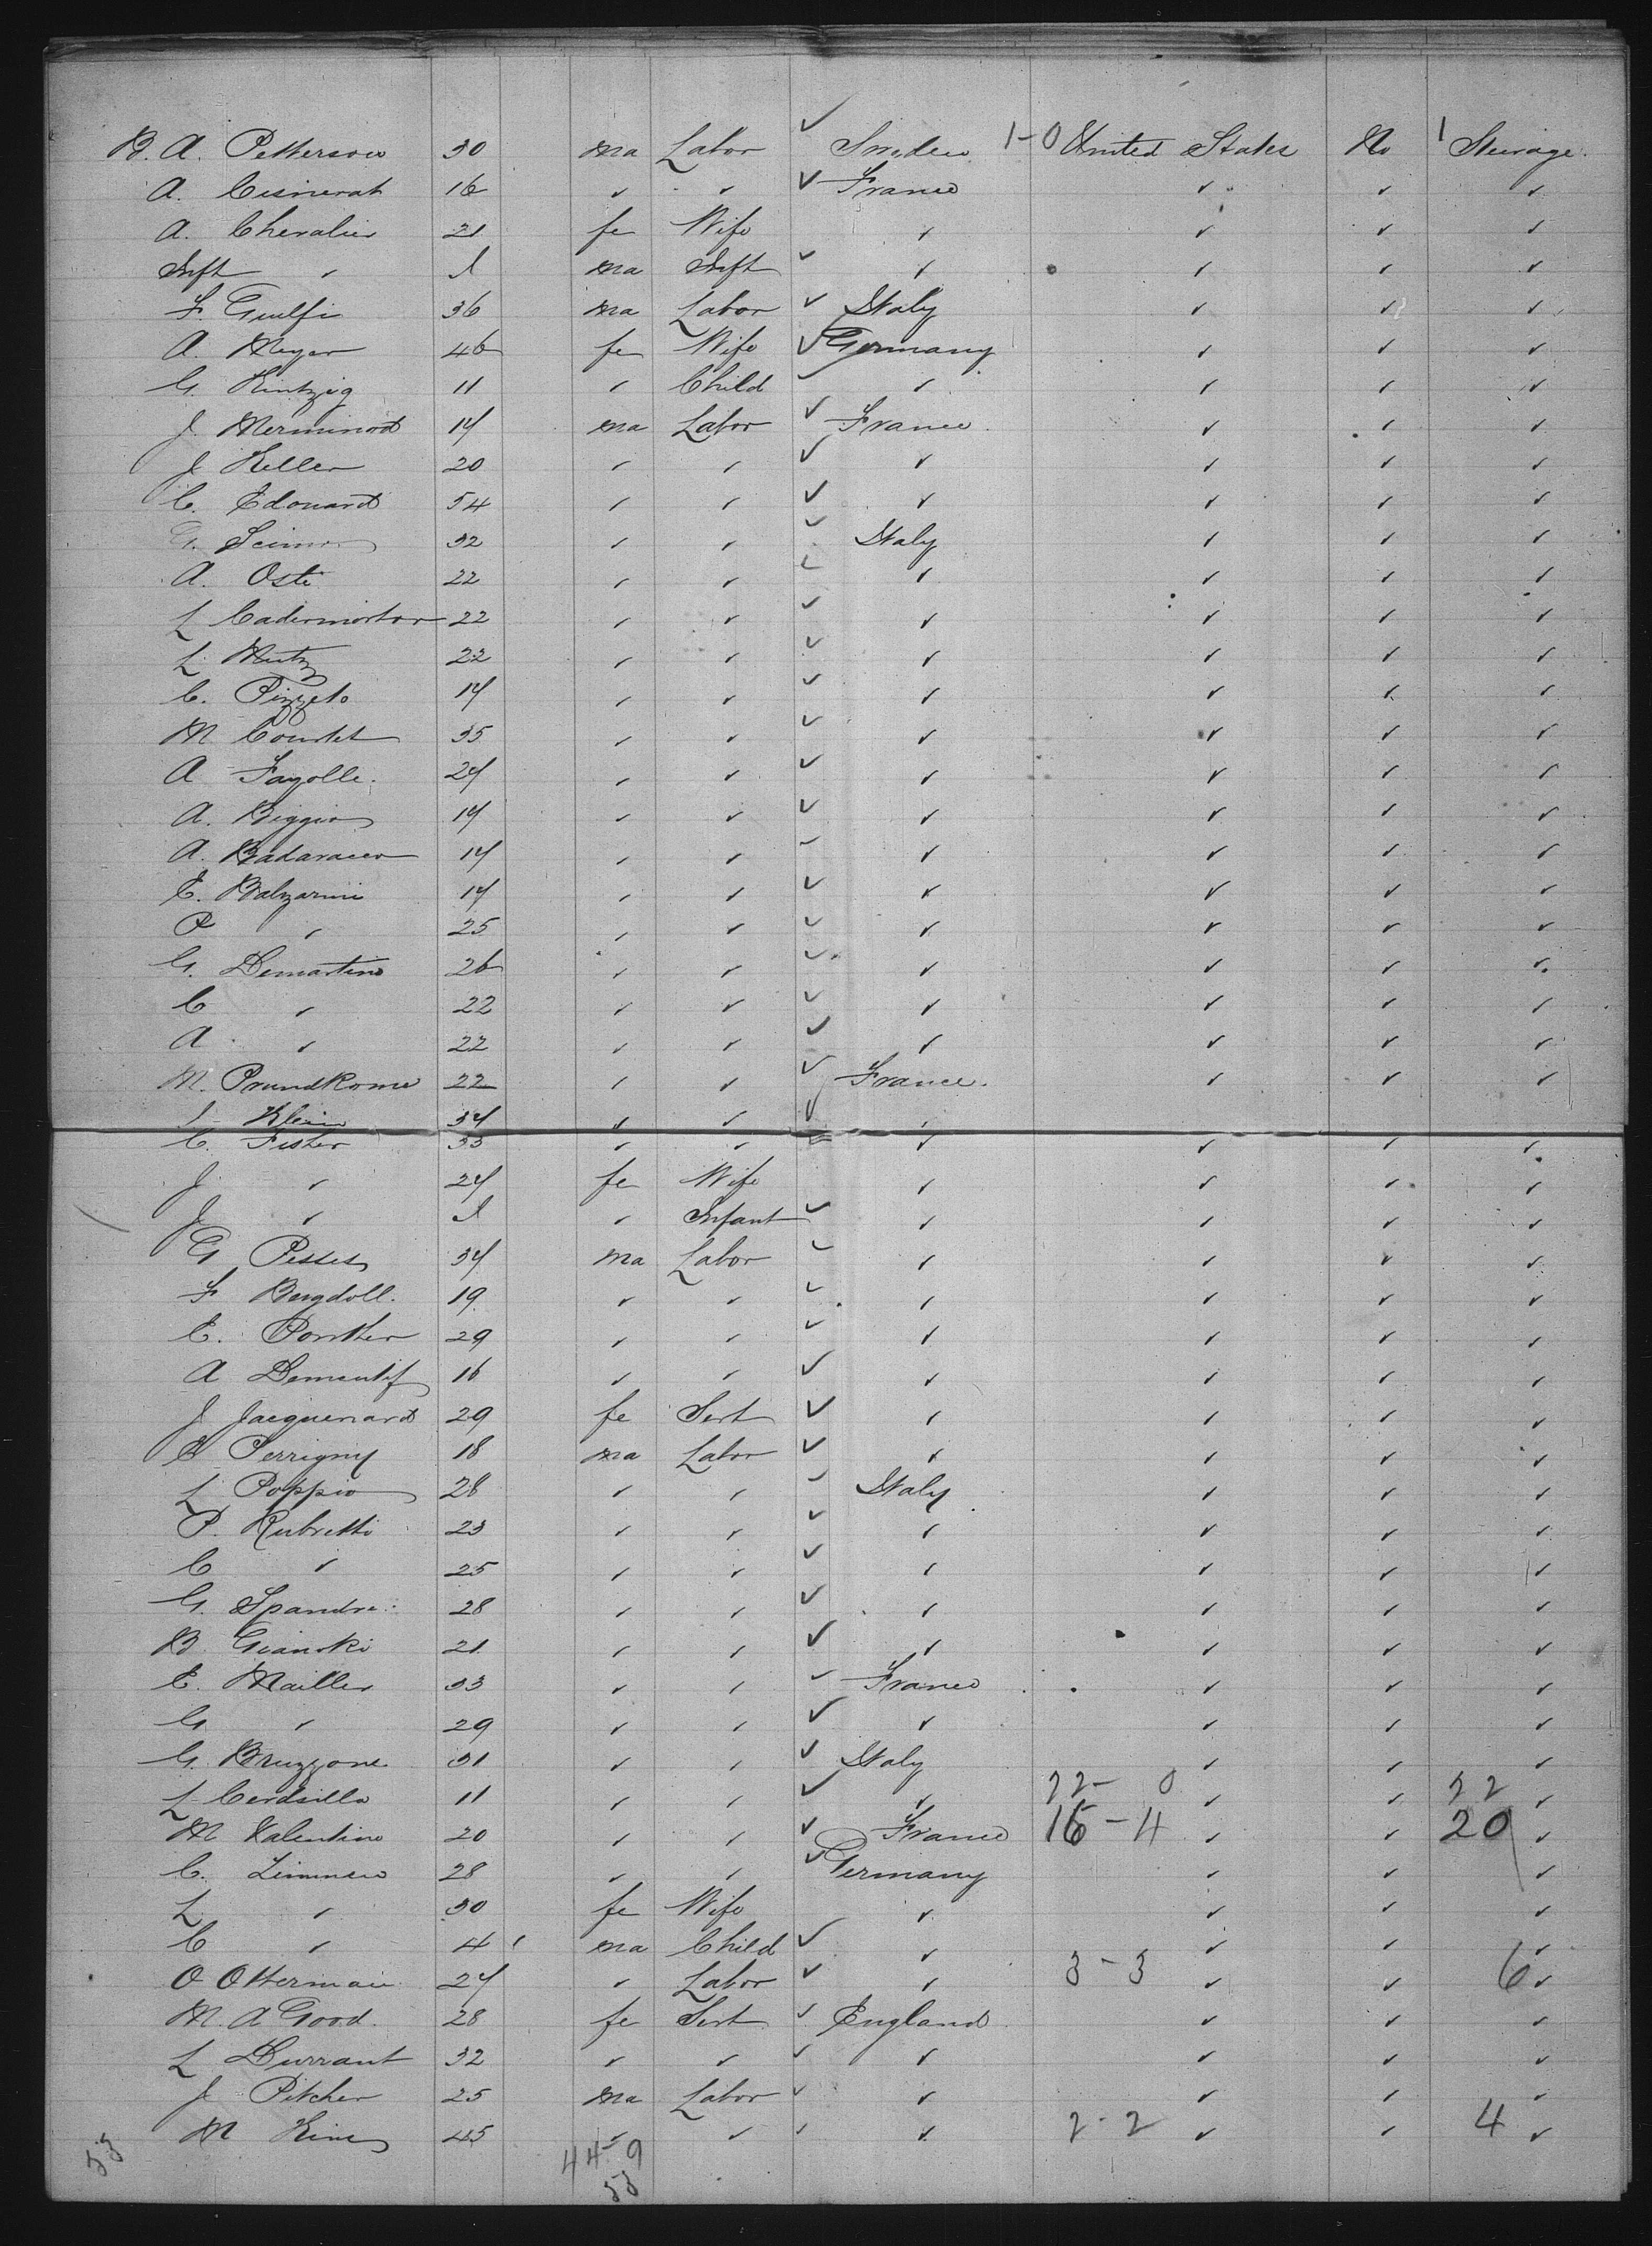 B. A. Petterson 30 ma Labor ✓ Sweden 1-0 United States No 1 Steerage.
A. Cisnerat 16 ✓ ✓ ✓ France ✓ ✓ ✓
A. Chevalier 21 fe Wife ✓ ✓ ✓ ✓
Inft ✓ I ma Inft ✓ ✓ ✓ ✓ ✓
F. Guelfi 36 ma Labor ✓ Italy ✓ ✓ ✓
A. Meyer 46 fe Wife ✓ Germany ✓ ✓ ✓
G. Kintzig 11 ✓ Child ✓ ✓ ✓ ✓ ✓
J. Merminod 14 ma Labor ✓ France. ✓ ✓ ✓
J Keller 20 ✓ ✓ ✓ ✓ ✓ ✓ ✓
C. Edouard 54 ✓ ✓ ✓ ✓ ✓ ✓ ✓
G. 32 ✓ ✓ ✓ Italy ✓ ✓ ✓
A. Osti 22 ✓ ✓ ✓ ✓ ✓ ✓ ✓
L Cadermortor 22 ✓ ✓ ✓ ✓ ✓ ✓ ✓
L. Mutz 22 ✓ ✓ ✓ ✓ ✓ ✓ ✓
C. Pizzeto 14 ✓ ✓ ✓ ✓ ✓ ✓ ✓
M. Courtet 35 ✓ ✓ ✓ ✓ ✓ ✓ ✓
A Fayolle. 24 ✓ ✓ ✓ ✓ ✓ ✓ ✓
A. Biggio 14 ✓ ✓ ✓ ✓ ✓ ✓ ✓
A. Badaracco 14 ✓ ✓ ✓ ✓ ✓ ✓ ✓
E. Balzarini 14 ✓ ✓ ✓ ✓ ✓ ✓ ✓
P ✓ 25 ✓ ✓ ✓ ✓ ✓ ✓ ✓
G. Demartino 26 ✓ ✓ ✓ ✓ ✓ ✓ ✓
C ✓ 22 ✓ ✓ ✓ ✓ ✓ ✓ ✓
A ✓ 22 ✓ ✓ ✓ ✓ ✓ ✓ ✓
M. Prundkome 22 ✓ ✓ ✓ France. ✓ ✓ ✓
Klein 34 ✓ ✓ ✓
C. Fisher 33 ✓ ✓ ✓ ✓ ✓ ✓
J ✓ 24 fe Wife ✓ ✓ ✓ ✓
J ✓ I ✓ Infant ✓ ✓ ✓ ✓ ✓
G Pesses 34 ma Labor ✓ ✓ ✓ ✓ ✓
F Bergdoll. 19 ✓ ✓ ✓ ✓ ✓ ✓ ✓
E. Porther 29 ✓ ✓ ✓ ✓ ✓ ✓ ✓
A Dementif 16 ✓ ✓ ✓ ✓ ✓ ✓ ✓
J Jacquenard 29 fe Sert ✓ ✓ ✓ ✓ ✓
E Perrigny 18 ma Labor ✓ ✓ ✓ ✓ ✓
L Poppio 28 ✓ ✓ ✓ Italy ✓ ✓ ✓
P. Rubretti 23 ✓ ✓ ✓ ✓ ✓ ✓ ✓
C ✓ 25 ✓ ✓ ✓ ✓ ✓ ✓ ✓
G. Spandre 28 ✓ ✓ ✓ ✓ ✓ ✓ ✓
B. Gianoki 21 ✓ ✓ ✓ ✓ ✓ ✓ ✓
E. Mailler 33 ✓ ✓ ✓ France ✓ ✓ ✓
G ✓ 29 ✓ ✓ ✓ ✓ ✓ ✓ ✓
G. Bruzzone 31 ✓ ✓ ✓ Italy ✓ ✓ ✓
L Cerdsilla 11 ✓ ✓ ✓ ✓ 22- 0 ✓ ✓ 22 ✓
M Valentino 20 ✓ ✓ ✓ France 16-4 ✓ ✓ 20 ✓
C. Limmer 28 ✓ ✓ ✓ Germany ✓ ✓ ✓
L ✓ 30 fe Wife ✓ ✓ ✓ ✓
C ✓ 4 ma Child ✓ ✓ ✓ ✓ ✓
O Otterman 24 ✓ Labor ✓ ✓ 3-3 ✓ ✓ 6 ✓
M. A Good. 28 fe Sert ✓ England ✓ ✓ ✓
L Durrant 32 ✓ ✓ ✓ ✓ ✓ ✓ ✓
J Pitcher 25 ma Labor ✓ ✓ ✓ ✓ ✓
M King 45 ✓ ✓ ✓ ✓ 2-2 ✓ ✓ 4 ✓
53 44-9
53